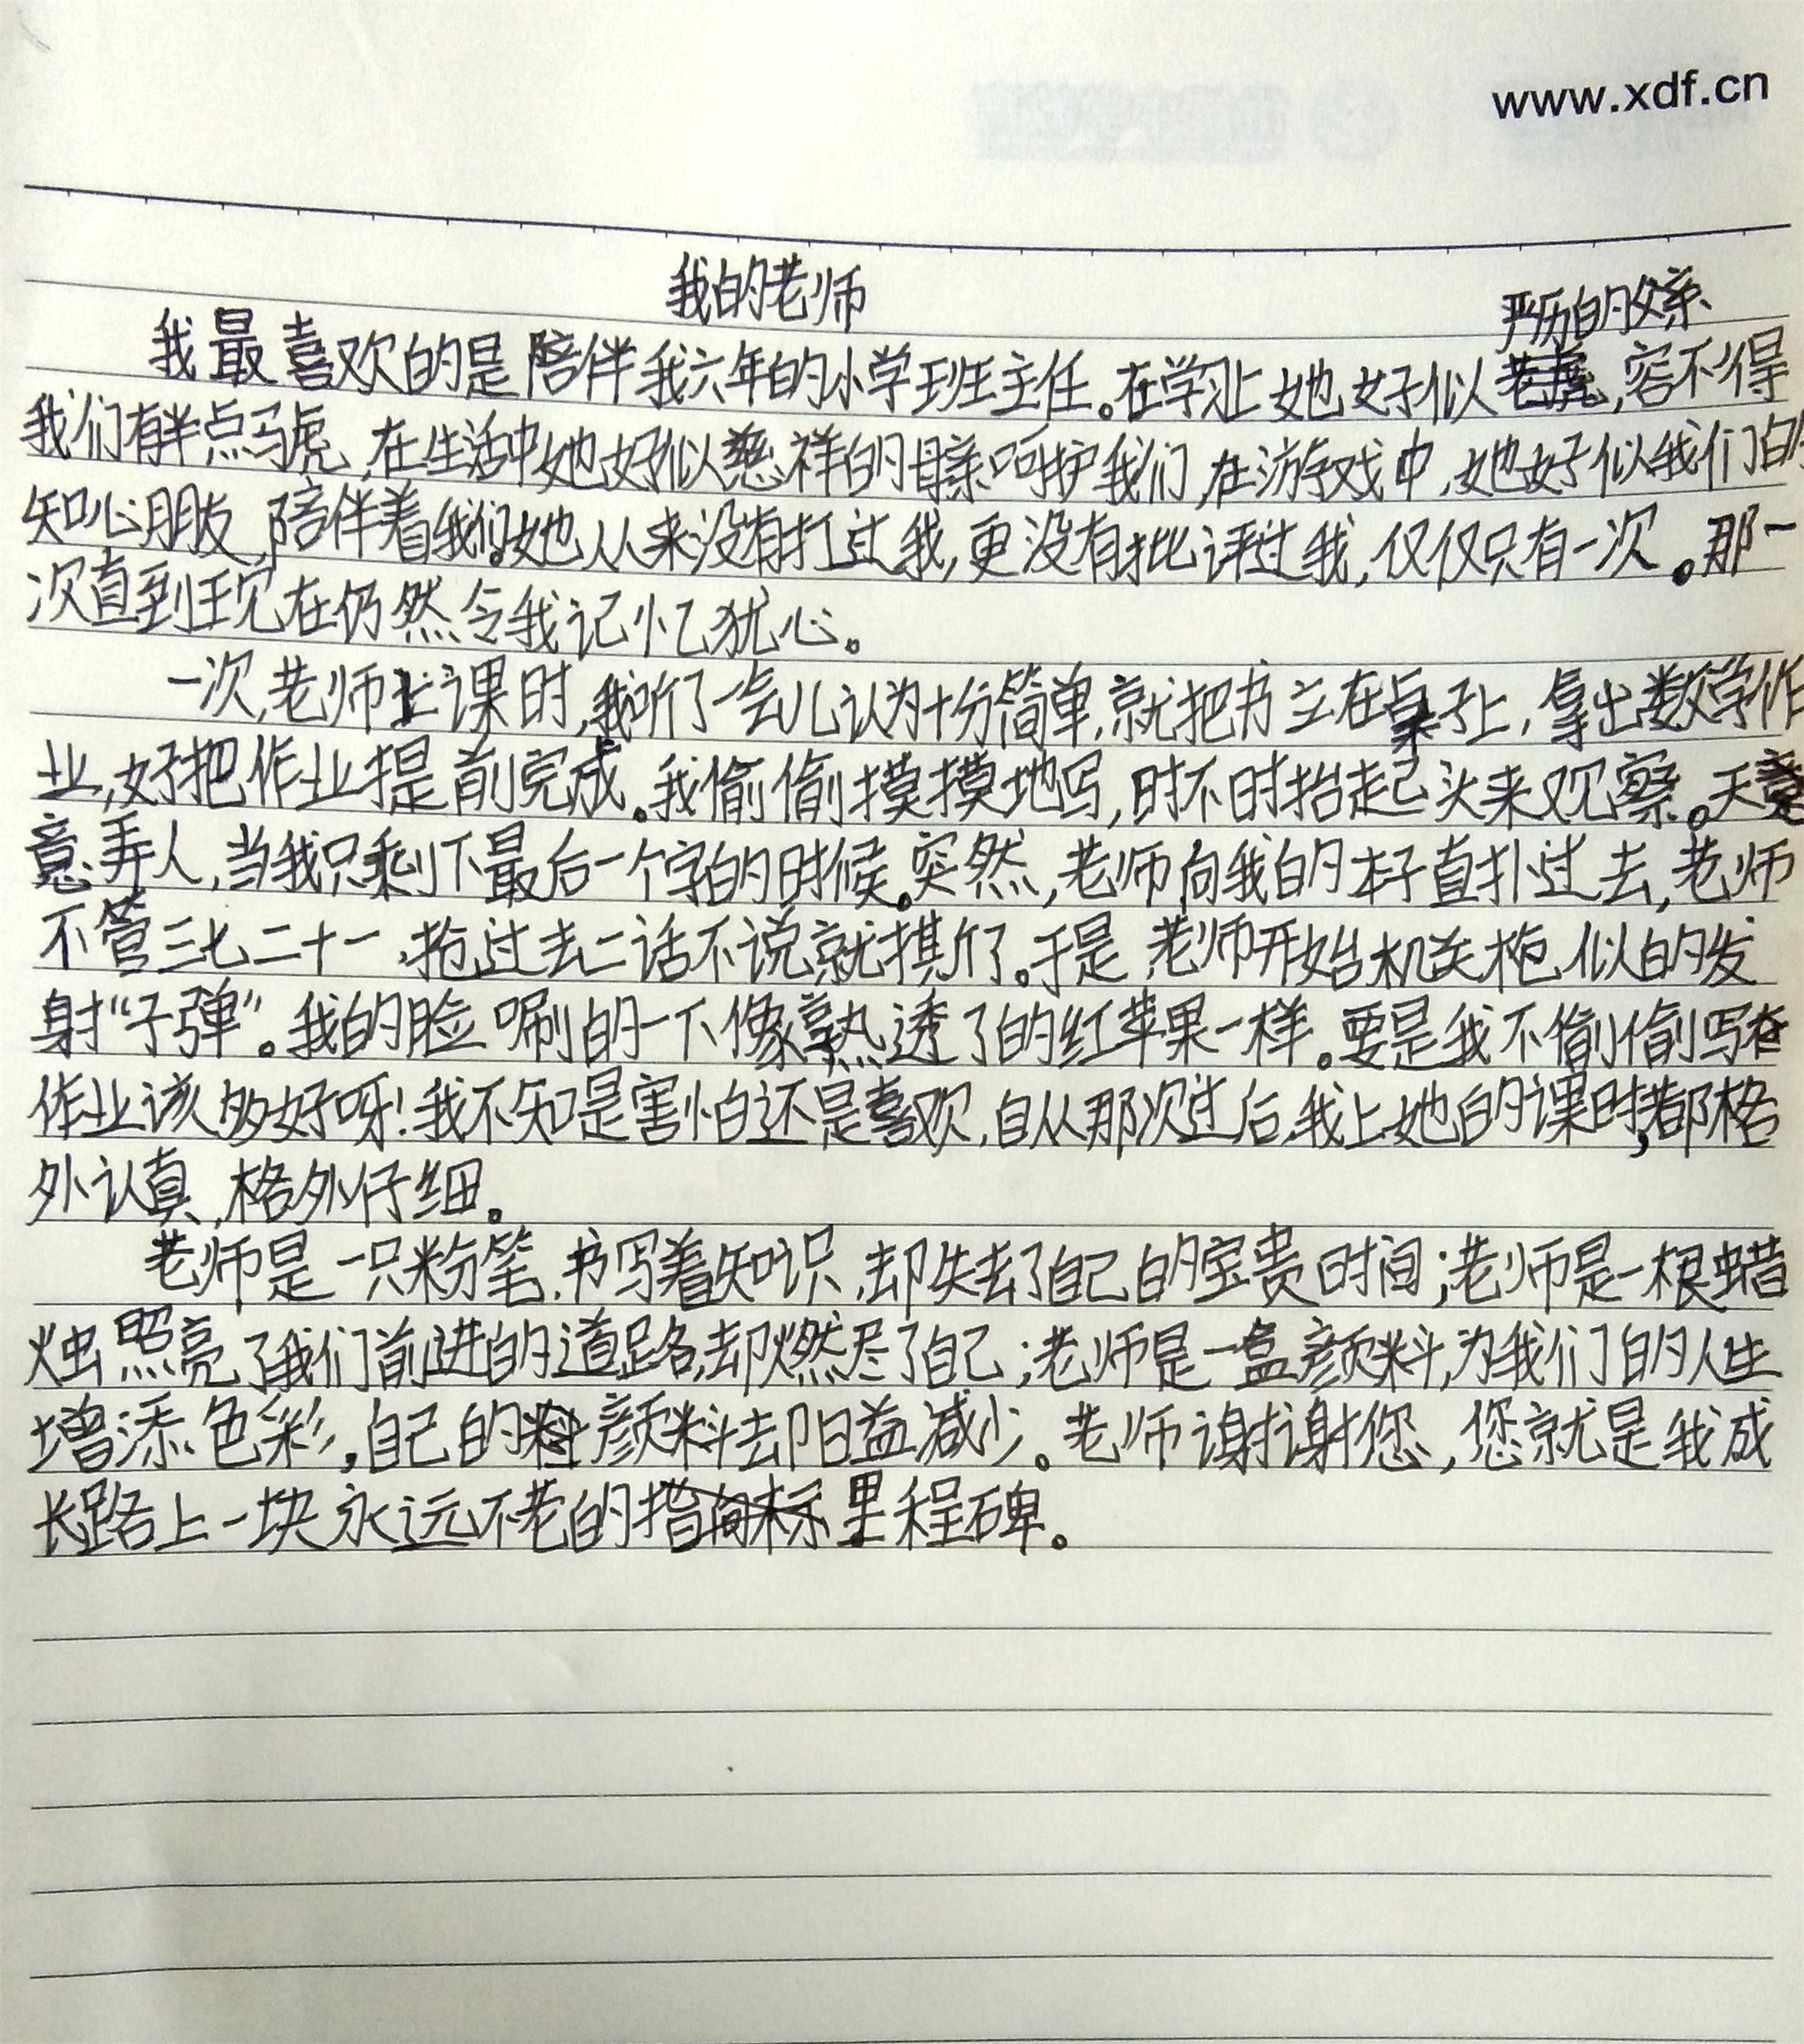 www.xdf.cn
我的老师
严历的父亲
我最喜欢的是陪伴我六年的小学班主任。在学习上她好似,容不得
我们有半点马虎,在生活中她好似慈祥的母亲呵护我们,在游戏中,她好似我们的
知心朋友,陪伴着我们。她从来没有打过我,更没有批评过我,仅仅只有一次。那一
次直到现在仍然令我记忆犹心。
一次,老师上课时,我听了一会儿认为十分简单,就把书立在桌子上,拿出数学作
业,好把作业提前完成。我偷偷摸摸地写,时不时抬起头来观察。天
意弄人,当我只剩下最后一个字的时候。突然,老师向我的本子直扑过去,老师
不管三七二十一,抢过去二话不说就撕了。于是老师开始机关枪似的发
射“子弹”。我的脸唰的一下像熟透了的红苹果一样。要是我不偷偷写
作业该多好呀!我不知是害怕还是喜欢,自从那次过后,我上她的课时,都格
外认真,格外仔细。
老师是一只粉笔,书写着知识,却失去了自己的宝贵时间;老师是一根蜡
烛照亮了我们前进的道路,却燃尽了自己;老师是一盒颜料,为我们的人生
增添色彩,自己的颜料却日益减少。老师谢谢您,您就是我成
长路上一块永远不老的里程碑。